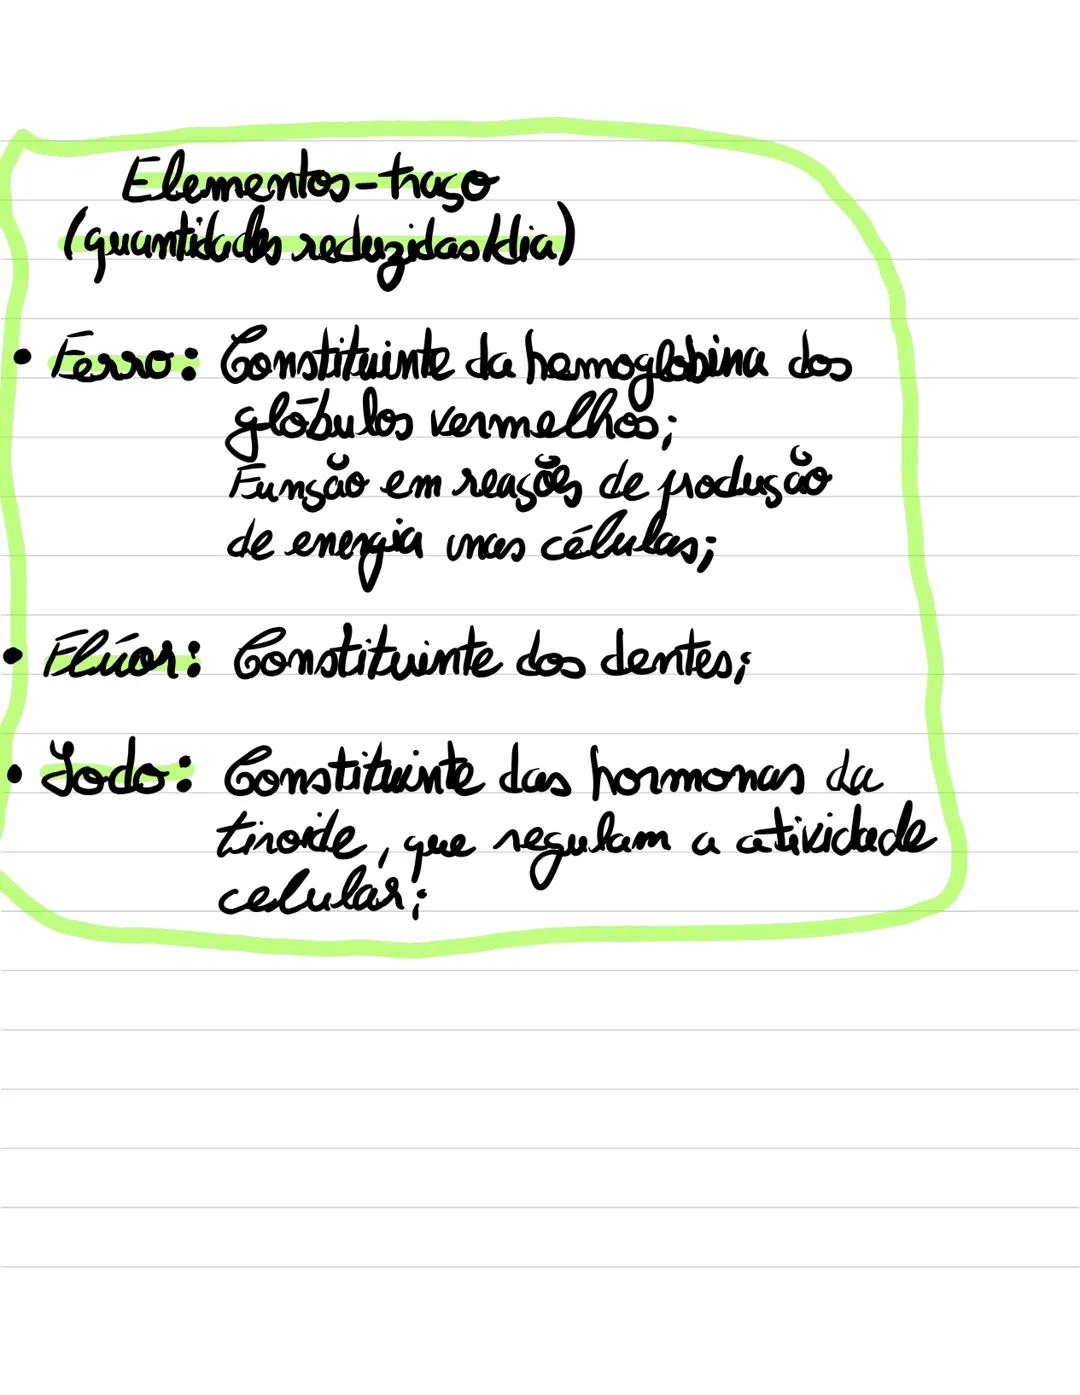 Elementos-traço
(quantidades reduzidas/dia)
• Ferro: Constituinte da hemoglobina dos
glóbulos vermelhos;
Função em reações de produção
de energia nas células;
• Flúor: Constituinte dos dentes;
• Iodo: Constituinte das hormonas da
tiroide, que regulam a atividade
celular;